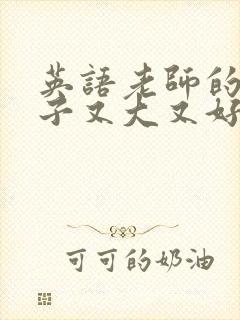 英語老師的
子又大又好
可可的奶油